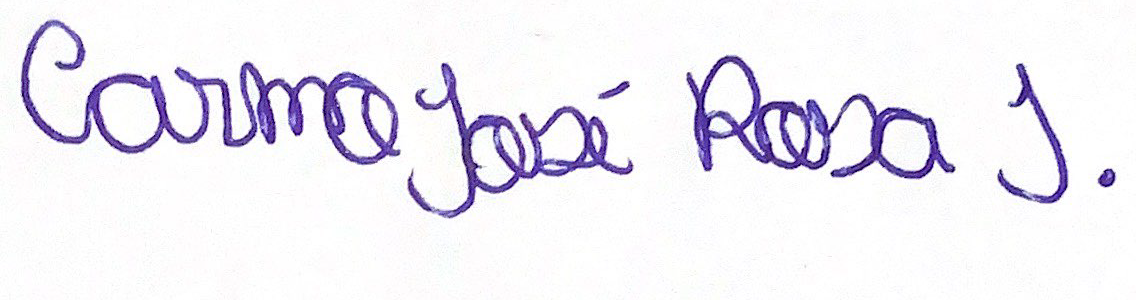 Carmo José Rosa J.